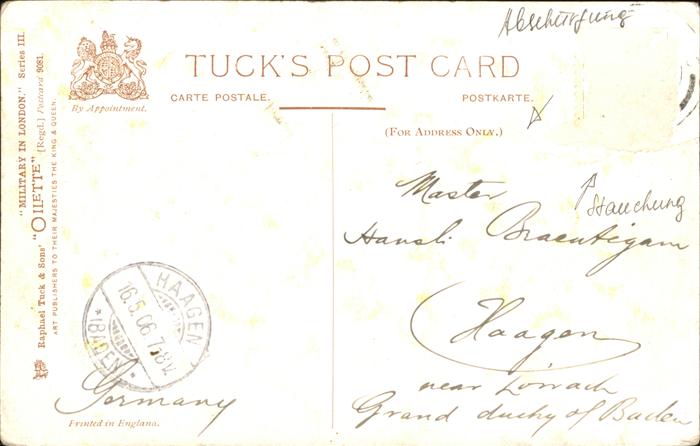 Abschürfung
TUCK'S POST CARD
By Appointment.
CARTE POSTALE.
POSTKARTE.
(FOR ADDRESS ONLY.)
"MILITARY IN LONDON." Series III.
Raphael Tuck & Sons' "OILETTE" [Regd.] Postcard 9081.
ART PUBLISHERS TO THEIR MAJESTIES THE KING & QUEEN.
Master
Stauchung
Hansli Braeutigam
HAAGEN
16.5.06.7-8V.
*(BADEN)*
Haagen
near Lörrach
Germany
Grand duchy of Baden
Printed in England.